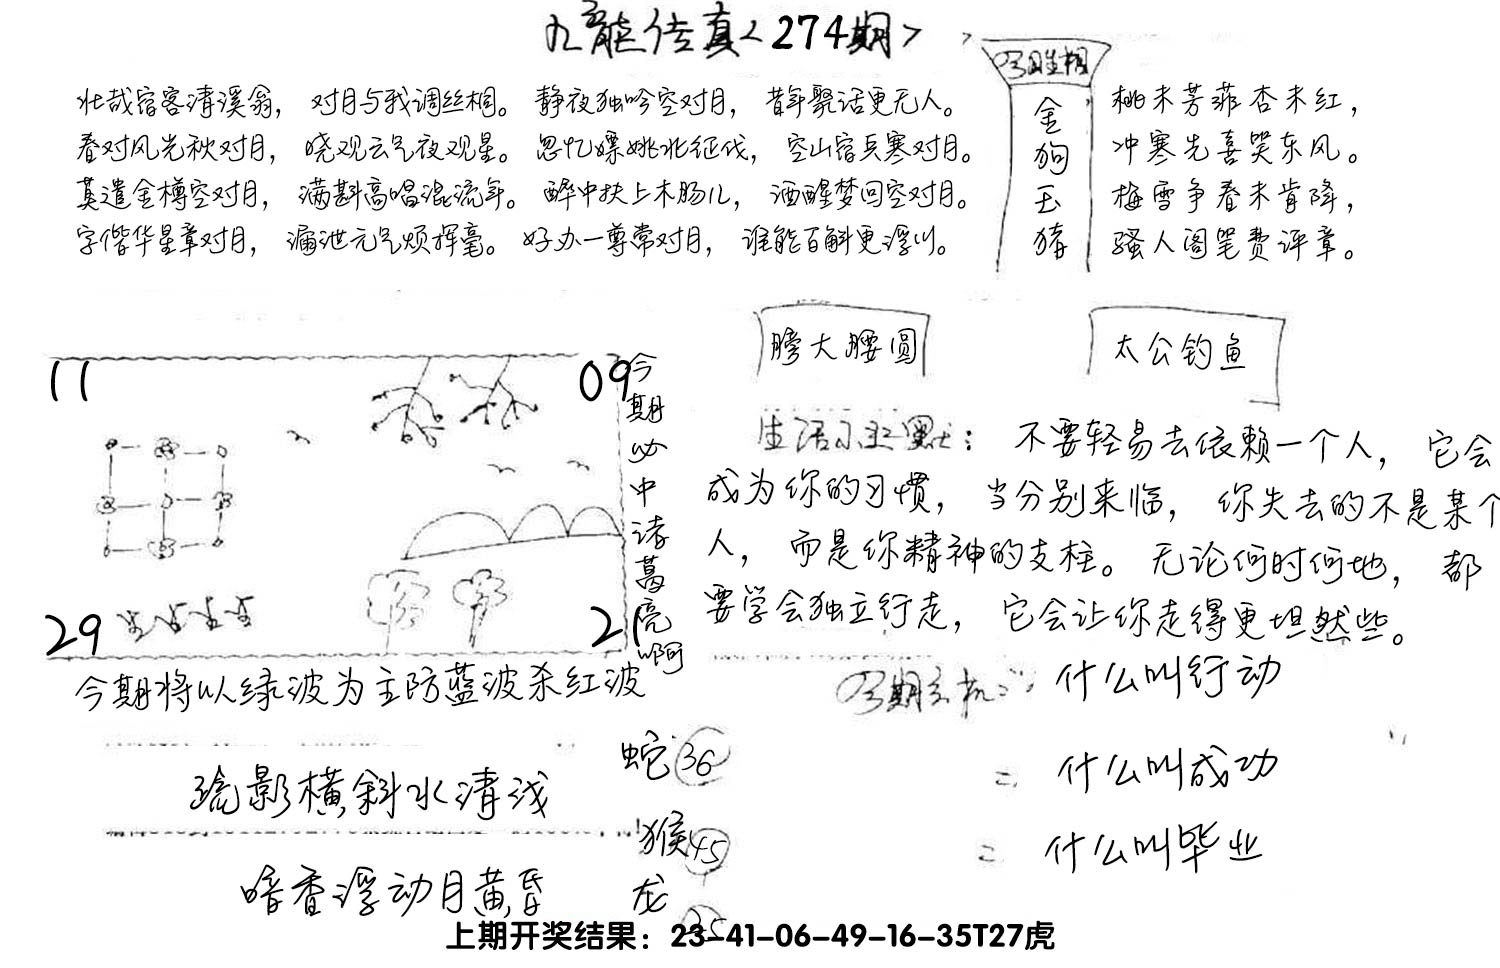 九龙传真<274期>
今期生相
金狗玉猪
壮哉宿客清溪翁，对月与我调丝桐。静夜独吟空对月，昔年聚话更无人。
春对风光秋对月，晓观云气夜观星。忽忆嫖姚北征伐，空山宿兵寒对月。
莫遣金樽空对月，满斟高唱混流年。醉中扶上木肠儿，酒醒梦回空对月。
字偕华星章对月，漏泄元气烦挥毫。好办一尊常对月，谁能百斛更浮川。
桃未芳菲杏未红，
冲寒先喜笑东风。
梅雪争春未肯降，
骚人阁笔费评章。
11
09
29
21
今期必中诸葛亮啊
今期将以绿波为主防蓝波杀红波
膀大腰圆
太公钓鱼
生活小幽默：不要轻易去依赖一个人，它会
成为你的习惯，当分别来临，你失去的不是某个
人，而是你精神的支柱。无论何时何地，都
要学会独立行走，它会让你走得更坦然些。
今期玄机：什么叫行动
什么叫成功
什么叫毕业
疏影横斜水清浅
暗香浮动月黄昏
蛇36
猴45
龙25
上期开奖结果：23-41-06-49-16-35T27虎